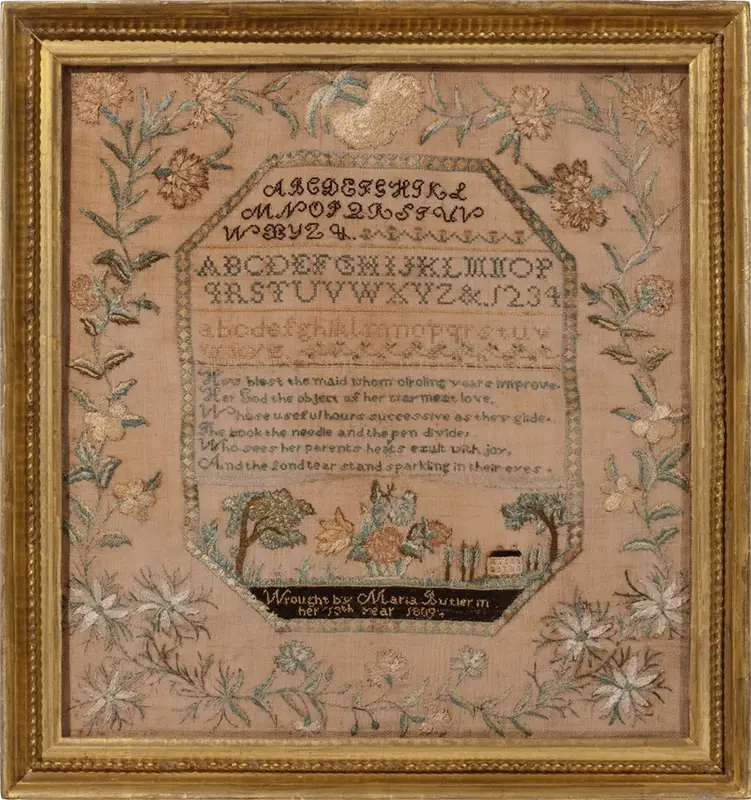 ABCDEFGHIKL
MNOPQRSTUV
WXYZ &.
ABCDEFGHIJKLMNOP
QRSTUVWXYZ&1234
abcdefghiklmnopqrstuv
How blest the maid whom circling years improve.
Her God the object of her warmest love.
Whose useful hours successive as they glide.
The book the needle and the pen divide.
Who sees her parents hearts exult with joy,
And the fond tear stand sparkling in their eyes.
Wrought by Maria Butler in
her 13th year 1809